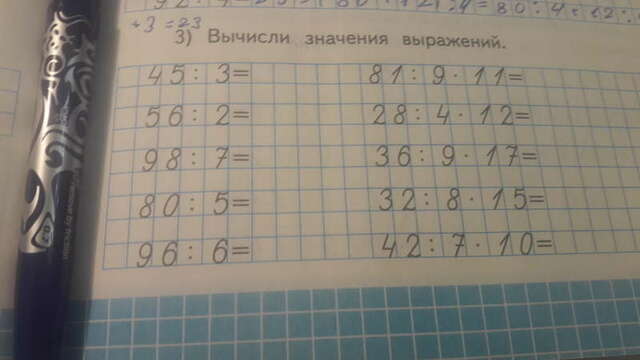 +3=23
3) Вычисли значения выражений.
45 : 3=
81 : 9 · 11=
56 : 2=
28 : 4 · 12=
98 : 7=
36 : 9 · 17=
80 : 5=
32 : 8 · 15=
96 : 6=
42 : 7 · 10=